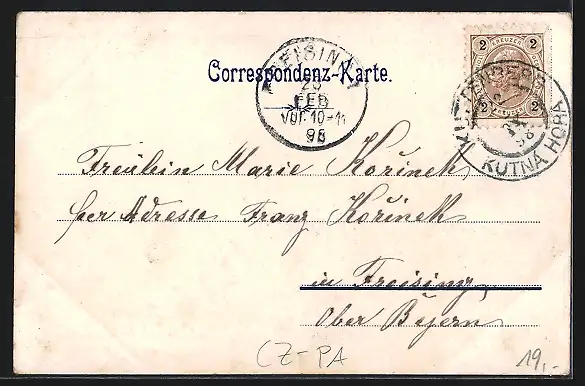 2 KREUZER 2
2 2
FREISING I
Correspondenz-Karte.
25
FEB
VOR.10-11
98
KUTTENBERG
98
KUTNÁ HORA
Fräulein Marie Kořinek
per Adresse Franz Kořinek
in Freising,
Ober Bayern
CZ-PA
19,-